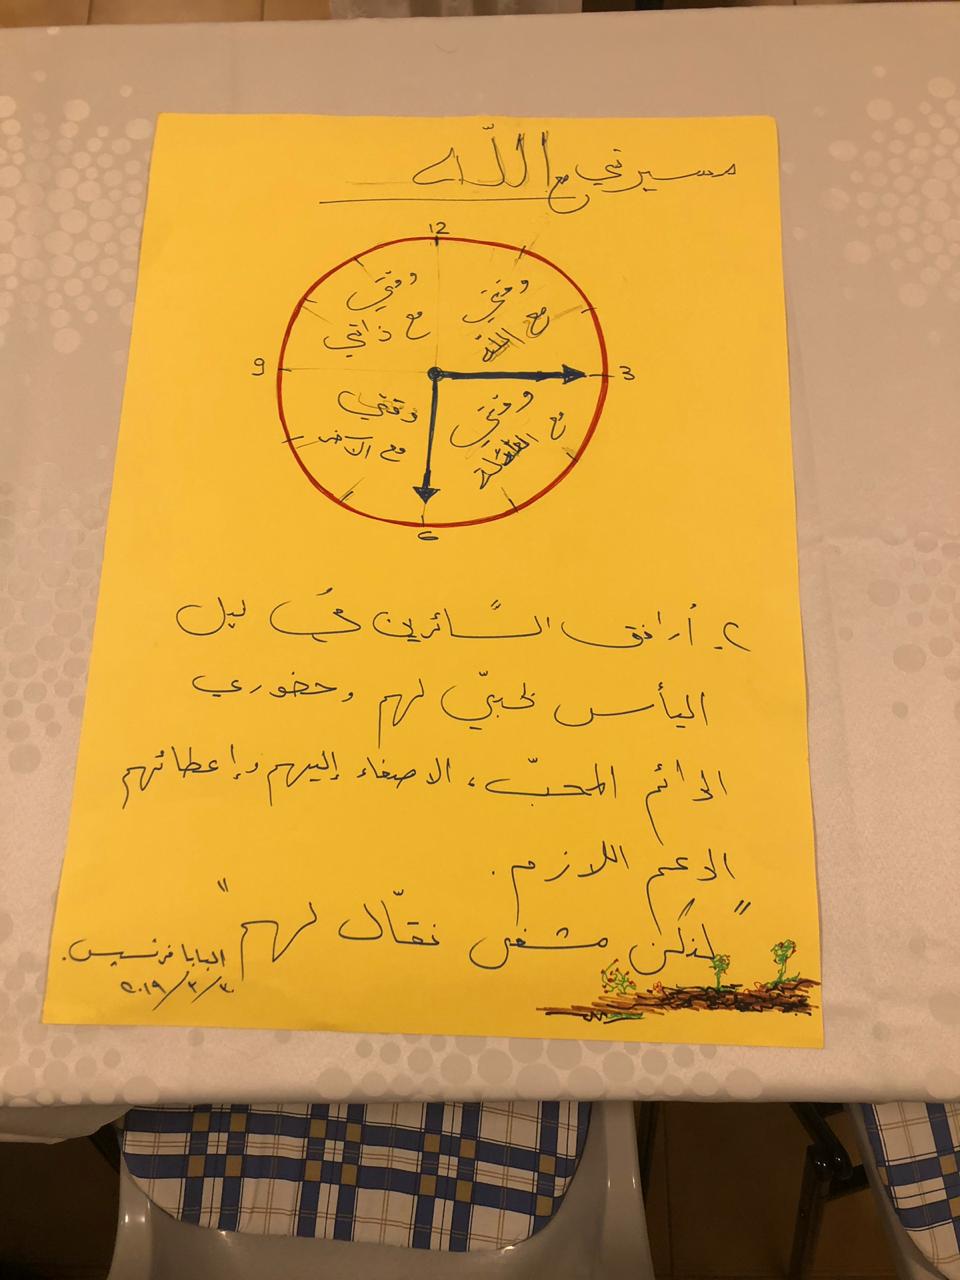 مسيرتي مع اللّه
12
وقتي
مع ذاتي
وقتي
مع اللّه
9
3
وقتي
مع الآخر
وقتي
مع العائلة
6
٢. أُرافق السَّائرين في ليل
اليأس بحبّي لهم وحضوري
الدائم المحبّ، الاصغاء إليهم وإعطائهم
الدعم اللازم.
"لنكن مشفى نقّال لهم"
البابا فرنسيس.
٢٠١٩/٣/٣٠